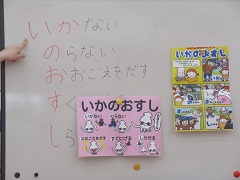 いかない
のらない
おおごえをだす
す
し
いかのおすし
いかない のらない
おおごえをだす すぐにげる しらせる
いかのおすし